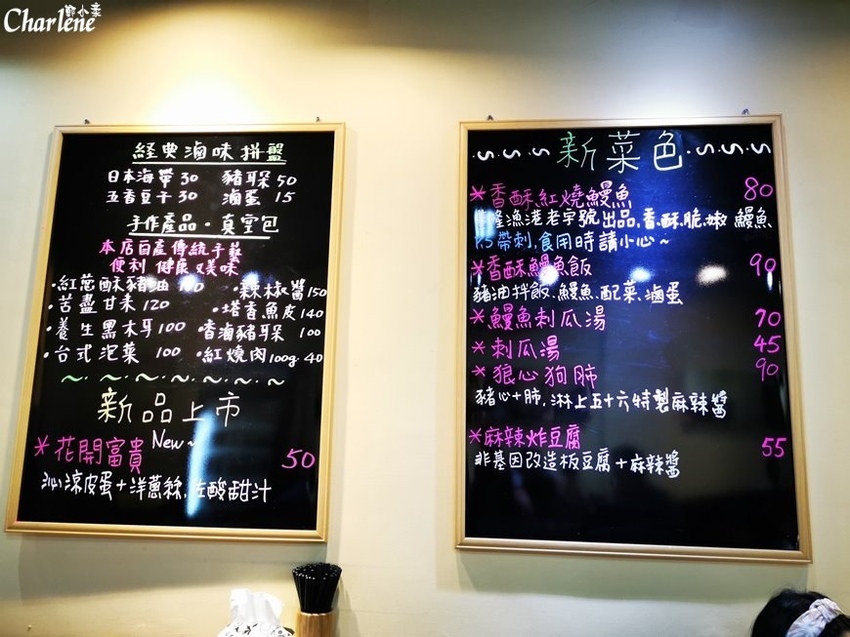 Charlene
鄭小柔
經典滷味拼盤
日本海帶 30 豬耳朵 50
五香豆干 30 滷蛋 15
手作產品·真空包
本店自產傳統手藝
便利 健康 又美味
·紅蔥酥豬油 100 ·辣椒醬 150
·苦盡甘來 120 ·塔香魚皮 140
·養生黑木耳 100 ·香滷豬耳朵 100
·台式泡菜 100 ·紅燒肉 100g 40
新品上市
New~
*花開富貴 50
沁涼皮蛋+洋蔥絲,佐酸甜汁
新菜色
*香酥紅燒鰻魚 80
隆漁港老字號出品,香.酥.脆.嫩 鰻魚
P.S帶刺,食用時請小心~
*香酥鰻魚飯 90
豬油拌飯.鰻魚.配菜.滷蛋
*鰻魚刺瓜湯 70
*刺瓜湯 45
*狼心狗肺 90
豬心+肺,淋上五十六特製麻辣醬
*麻辣炸豆腐 55
非基因改造板豆腐+麻辣醬